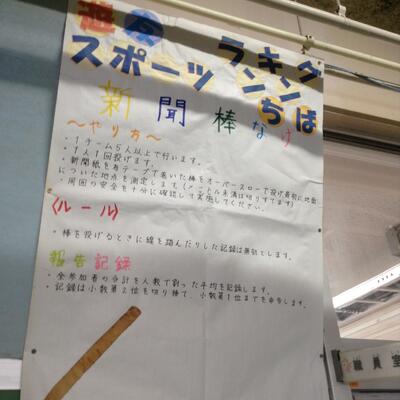 スポーツ ランキング
ちば
新聞棒なげ
～やり方～
・1チーム5人以上で行います。
・1人1回投げます。
・新聞紙を布テープで巻いた棒をオーバースローで投げ最初に地面
についた地点を測定します。(メートル未満は切りすてます)
・周囲の安全を十分に確認して実施してください。
〈ルール〉
・棒を投げるときに線を踏んだりした記録は無効とします。
報告記録
・全参加者の合計を人数で割った平均を記録します。
・記録は小数第2位を切り捨て、小数第1位までを申告します。
職員室